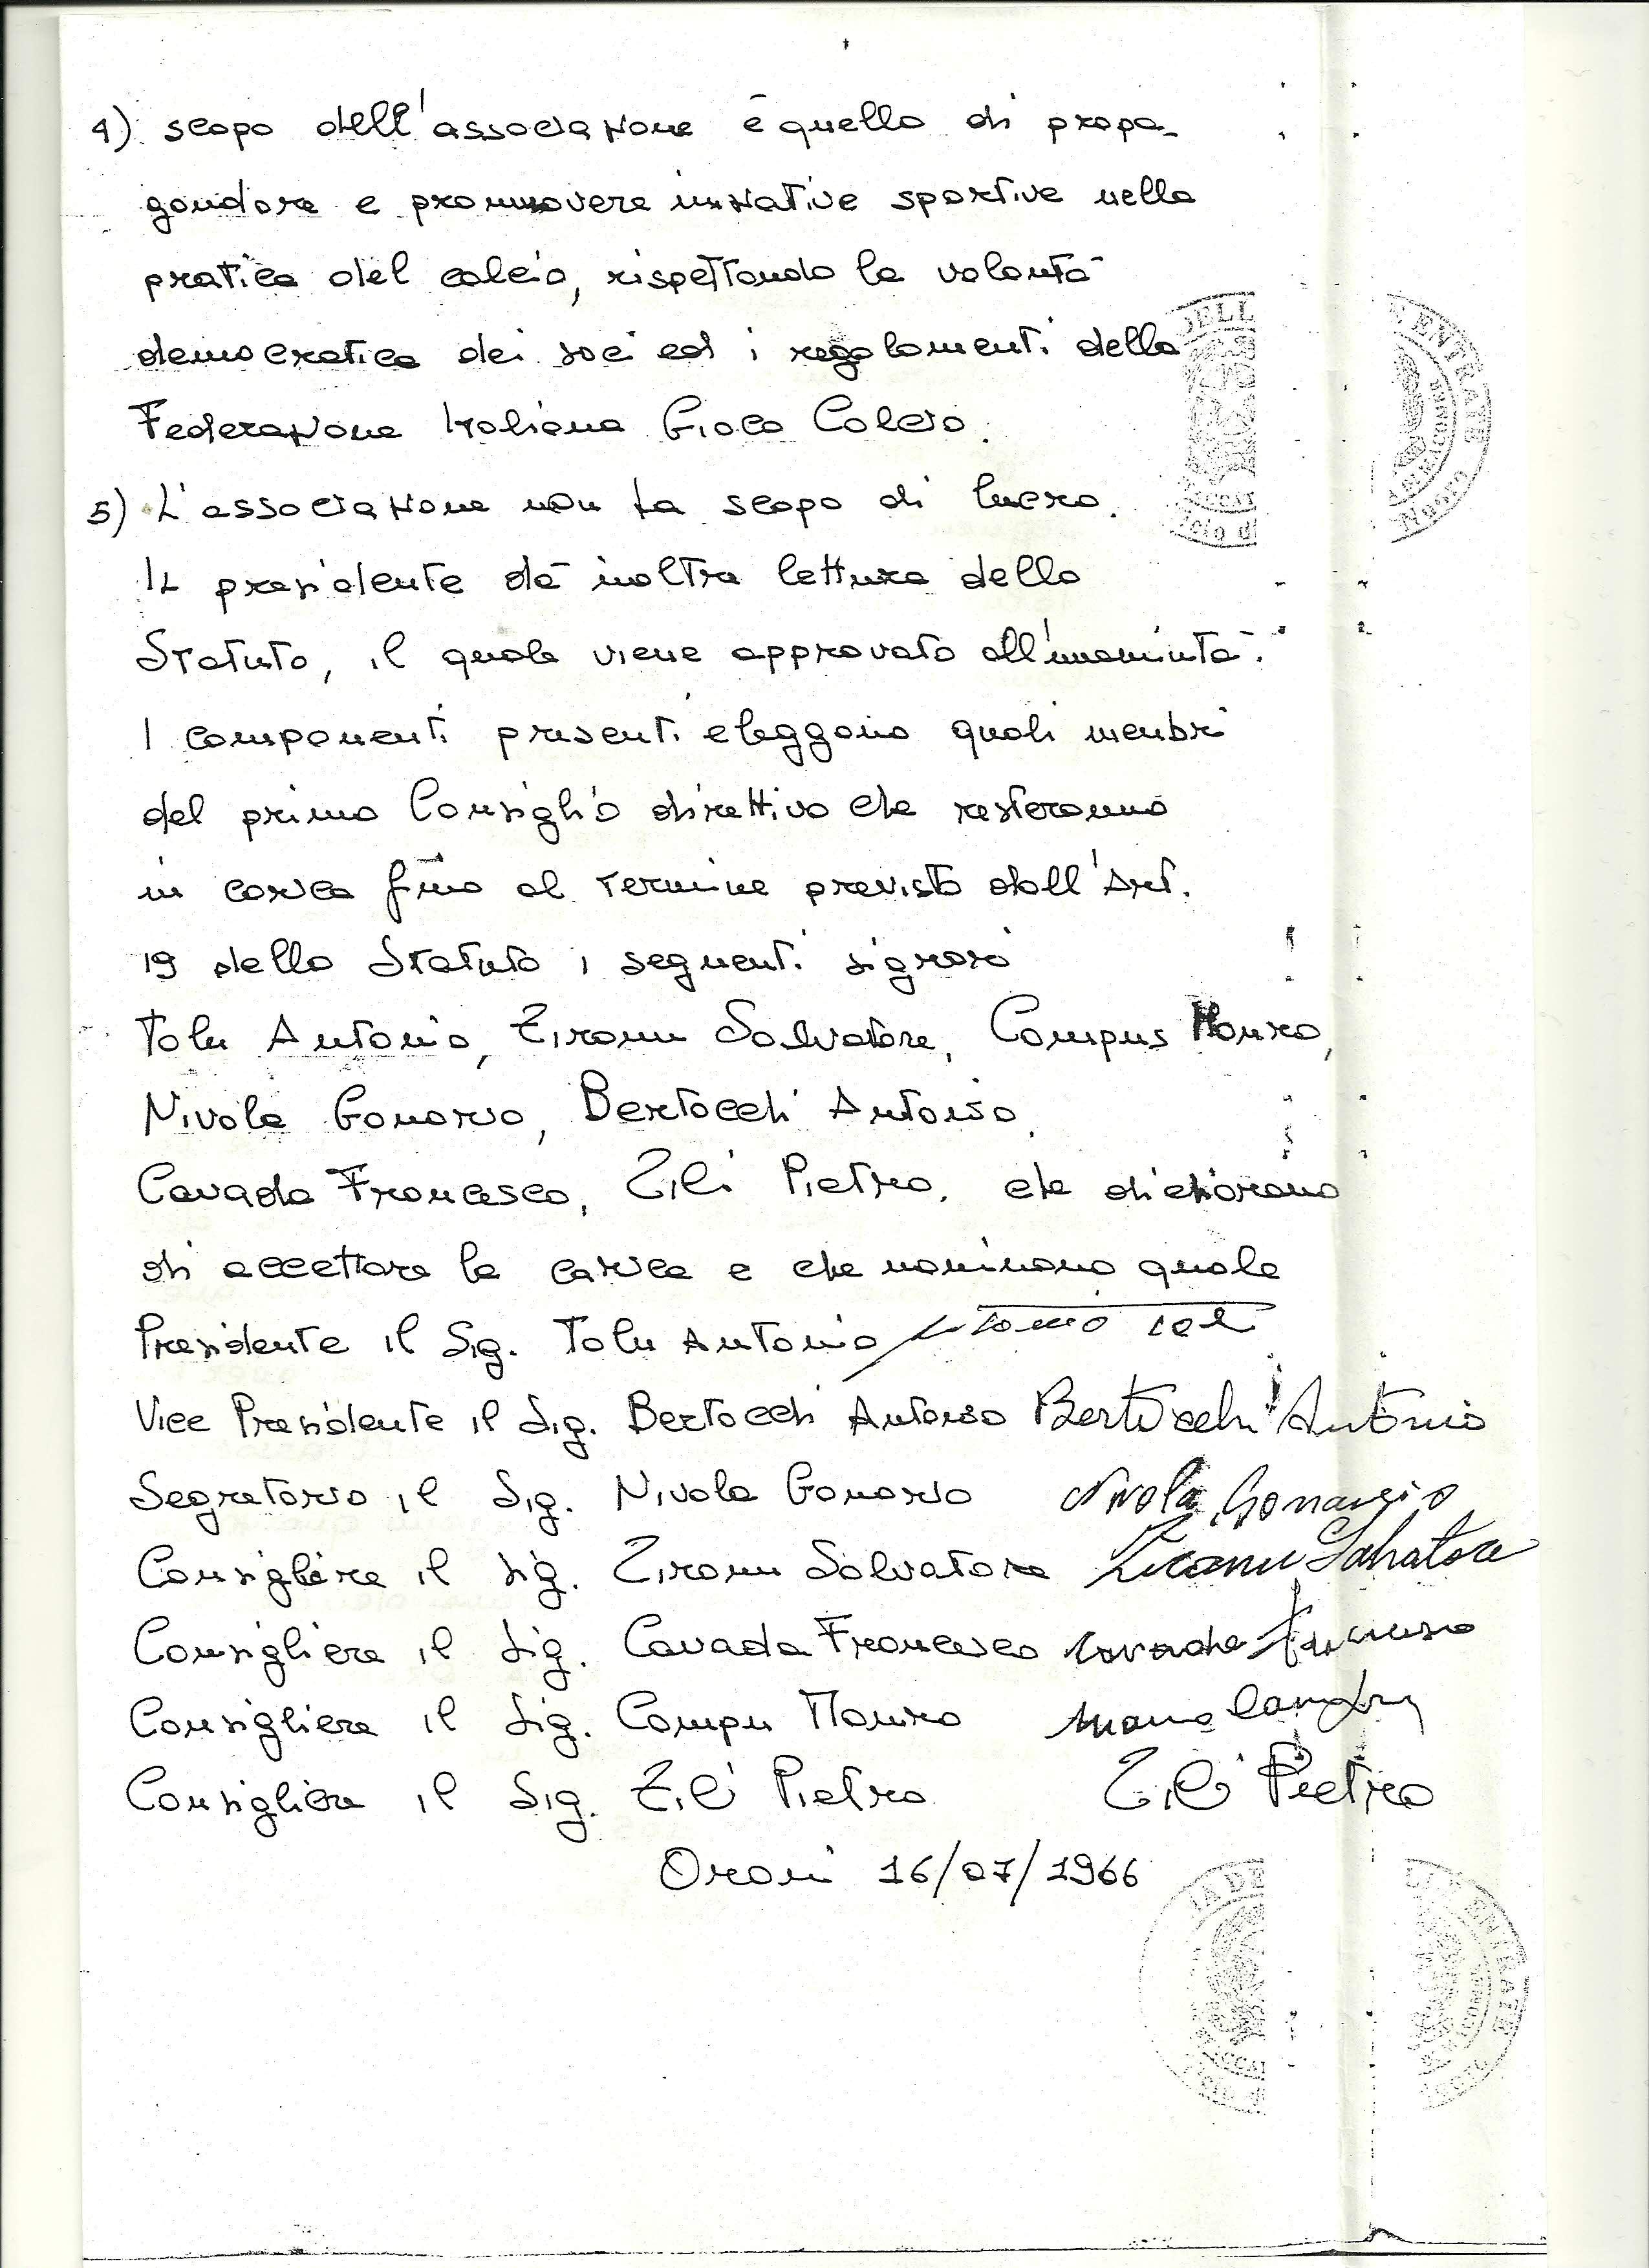 4) scopo dell'associazione è quello di propa-
gandare e promuovere iniziative sportive nella
pratica del calcio, rispettando la volontà
democratica dei soci ed i regolamenti della
Federazione Italiana Gioco Calcio.
5) L'associazione non ha scopo di lucro.
Il presidente dà inoltre lettura dello
Statuto, il quale viene approvato all'unanimità.
I componenti presenti eleggono quali membri
del primo Consiglio direttivo che resteranno
in carica fino al termine previsto dall'Art.
19 dello Statuto i seguenti signori
Tolu Antonio, Ziranu Salvatore, Campus Mauro,
Nivola Gonario, Bertocchi Antonio,
Cavada Francesco, Zili Pietro, che dichiarano
di accettare la carica e che nominano quale
Presidente il Sig. Tolu Antonio
Vice Presidente il Sig. Bertocchi Antonio Bertocchi Antonio
Segretario il Sig. Nivola Gonario Nivola Gonario
Consigliere il Sig. Ziranu Salvatore Ziranu Salvatore
Consigliere il Sig. Cavada Francesco Cavada Francesco
Consigliere il Sig. Campu Mauro
Consigliere il Sig. Zili Pietro Zili Pietro
Orani 16/07/1966
DELL
ENTRATE
Nuoro
ENTRATE